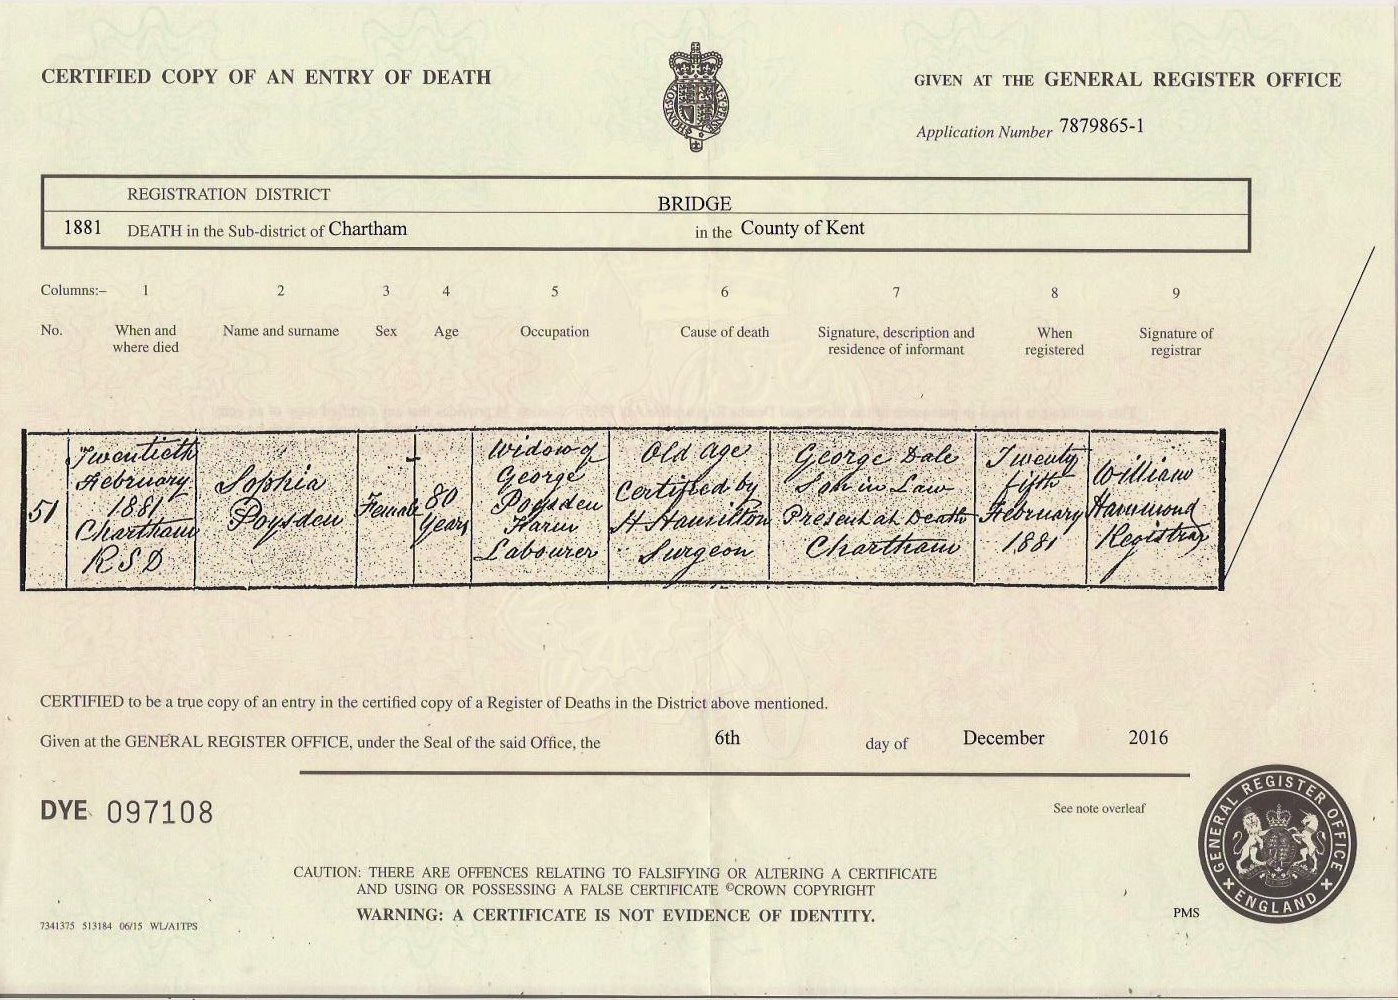 CERTIFIED COPY OF AN ENTRY OF DEATH
GIVEN AT THE GENERAL REGISTER OFFICE
Application Number 7879865-1
REGISTRATION DISTRICT
BRIDGE
1881 DEATH in the Sub-district of Chartham in the County of Kent
Columns:– 1 2 3 4 5 6 7 8 9
No.
When and
where died
Name and surname
Sex
Age
Occupation
Cause of death
Signature, description and
residence of informant
When
registered
Signature of
registrar
51
Twentieth
February
1881
Chartham
RSD
Sophia
Poysden
Female
80
Years
Widow of
George
Poysden
Farm
Labourer
Old Age
Certified by
H Hamilton
Surgeon
George Dale
Son in Law
Present at Death
Chartham
Twenty
fifth
February
1881
William
Hammond
Registrar
CERTIFIED to be a true copy of an entry in the certified copy of a Register of Deaths in the District above mentioned.
Given at the GENERAL REGISTER OFFICE, under the Seal of the said Office, the 6th day of December 2016
DYE 097108
See note overleaf
GENERAL REGISTER OFFICE
ENGLAND
CAUTION: THERE ARE OFFENCES RELATING TO FALSIFYING OR ALTERING A CERTIFICATE
AND USING OR POSSESSING A FALSE CERTIFICATE ©CROWN COPYRIGHT
WARNING: A CERTIFICATE IS NOT EVIDENCE OF IDENTITY.
7341375 513184 06/15 WL/A1TPS
PMS